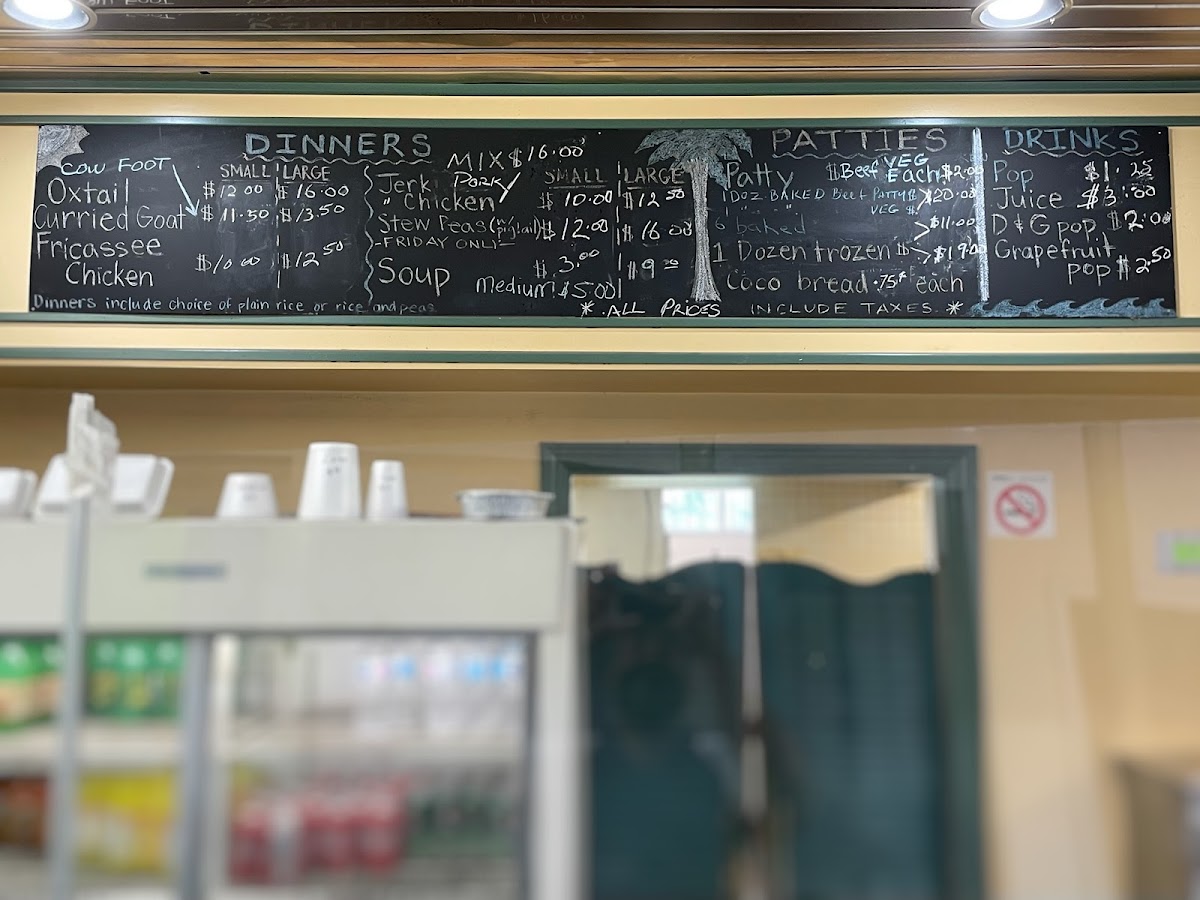 DINNERS
COW FOOT
SMALL LARGE
Oxtail $12.00 $16.00
Curried Goat $11.50 $13.50
Fricassee
Chicken $10.00 $12.50
Dinners include choice of plain rice or rice and peas
MIX $16.00
SMALL LARGE
Jerk Pork
" Chicken $10.00 $12.50
Stew Peas (w/pigtail) $12.00 $16.00
-FRIDAY ONLY-
Soup $3.00 $9.00
medium $5.00
PATTIES
Patty $Beef VEG Each $2.00
1 DOZ BAKED Beef Patty $20.00
VEG $
6 baked $11.00
1 Dozen frozen $19.00
Coco bread .75¢ each
* ALL PRICES INCLUDE TAXES *
DRINKS
Pop $1.25
Juice $3.00
D & G pop $2.00
Grapefruit
pop $2.50